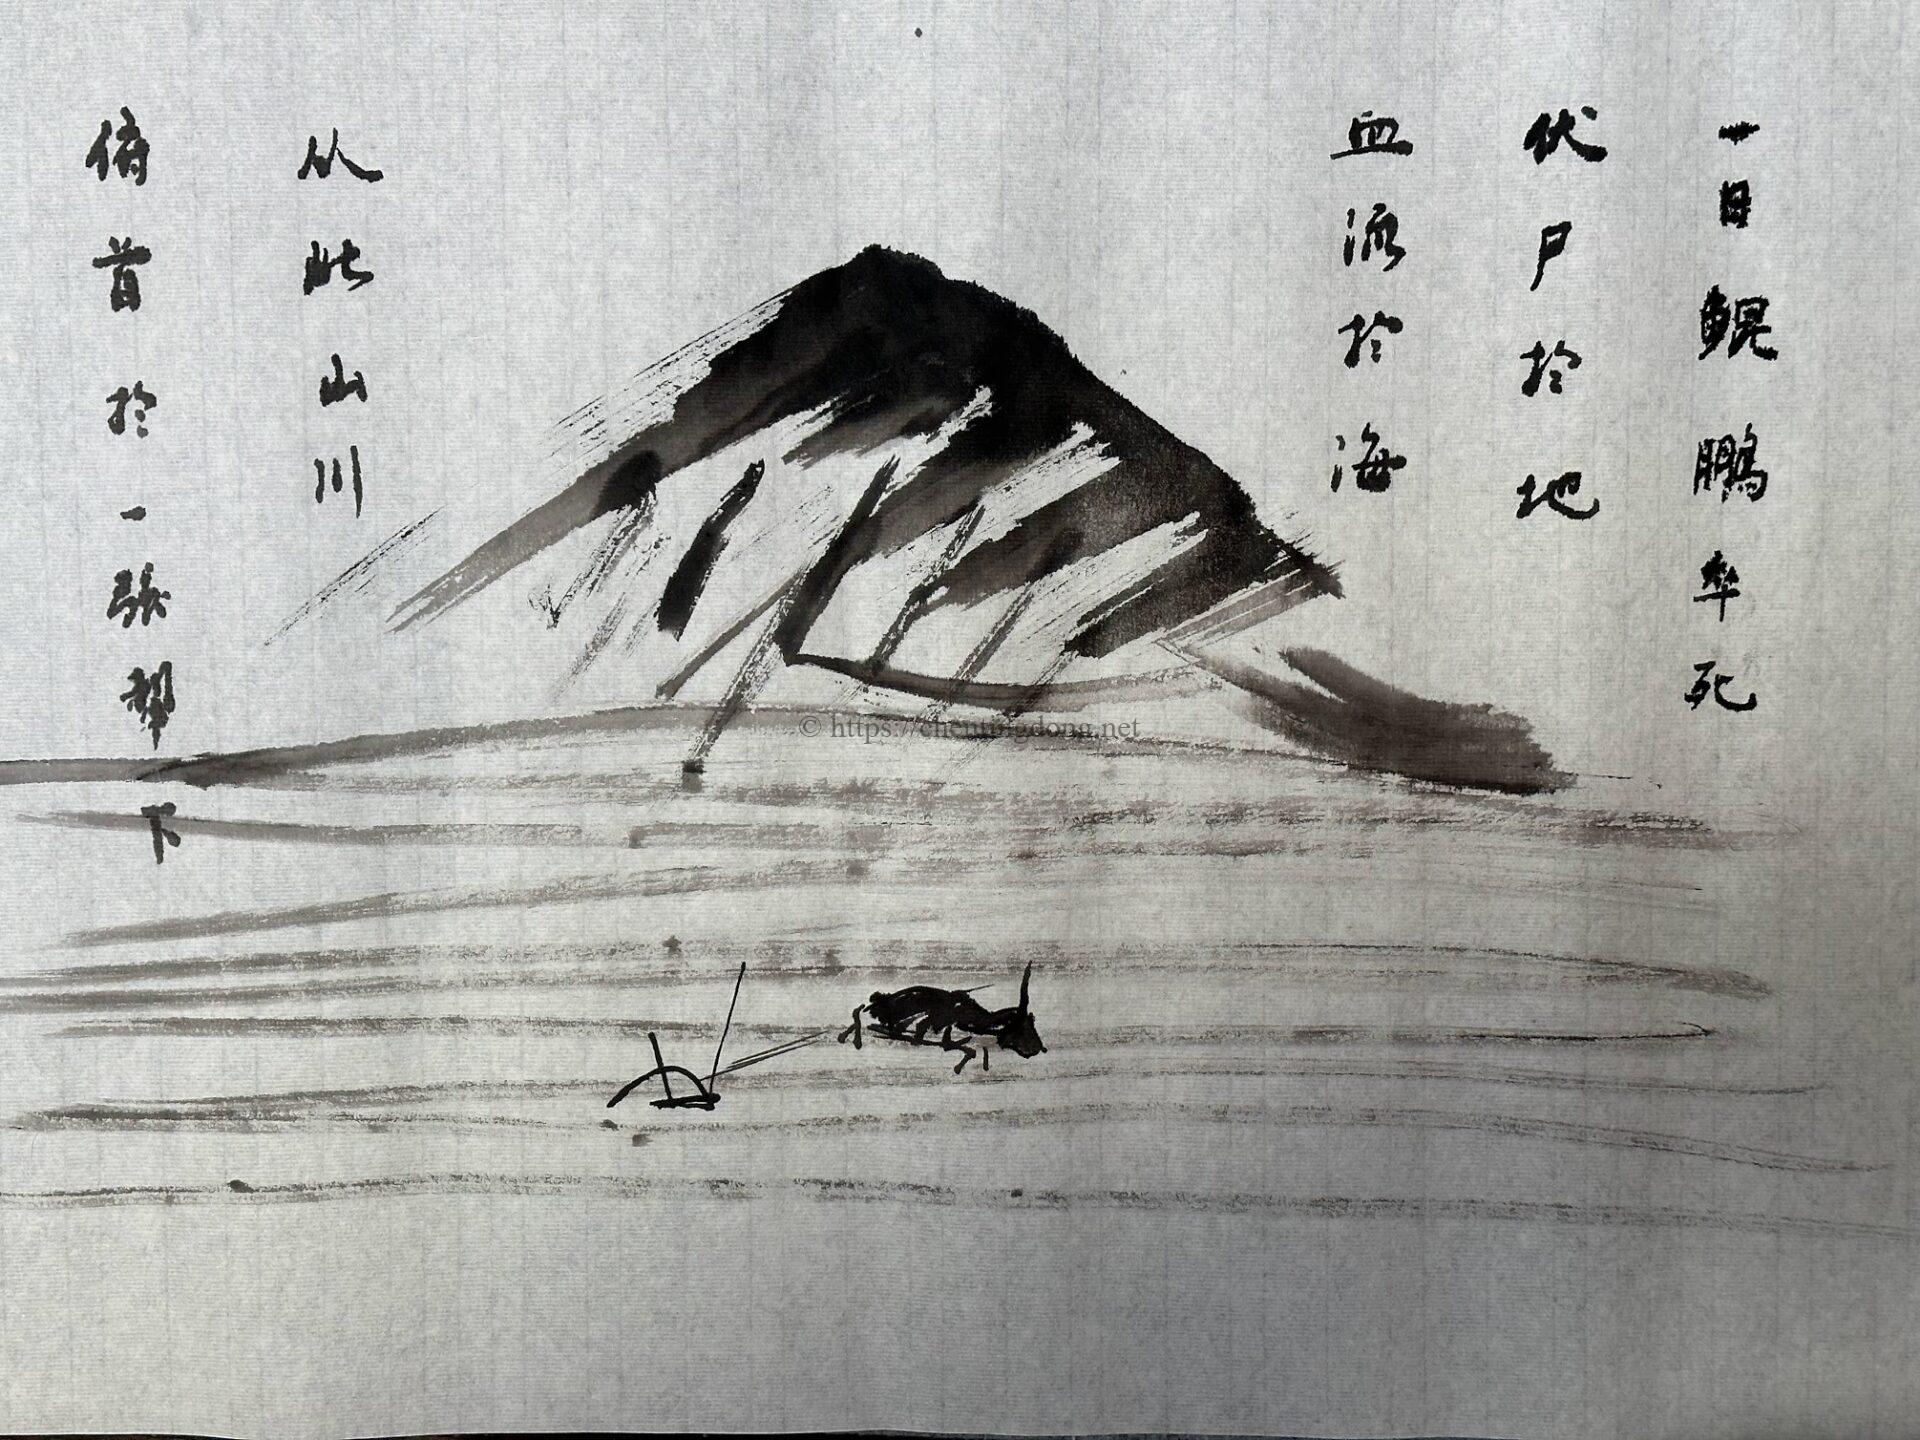 一日鲲鹏卒死
伏尸於地
血流於海
从此山川
俯首於一张犁下
© https://chentingdong.net